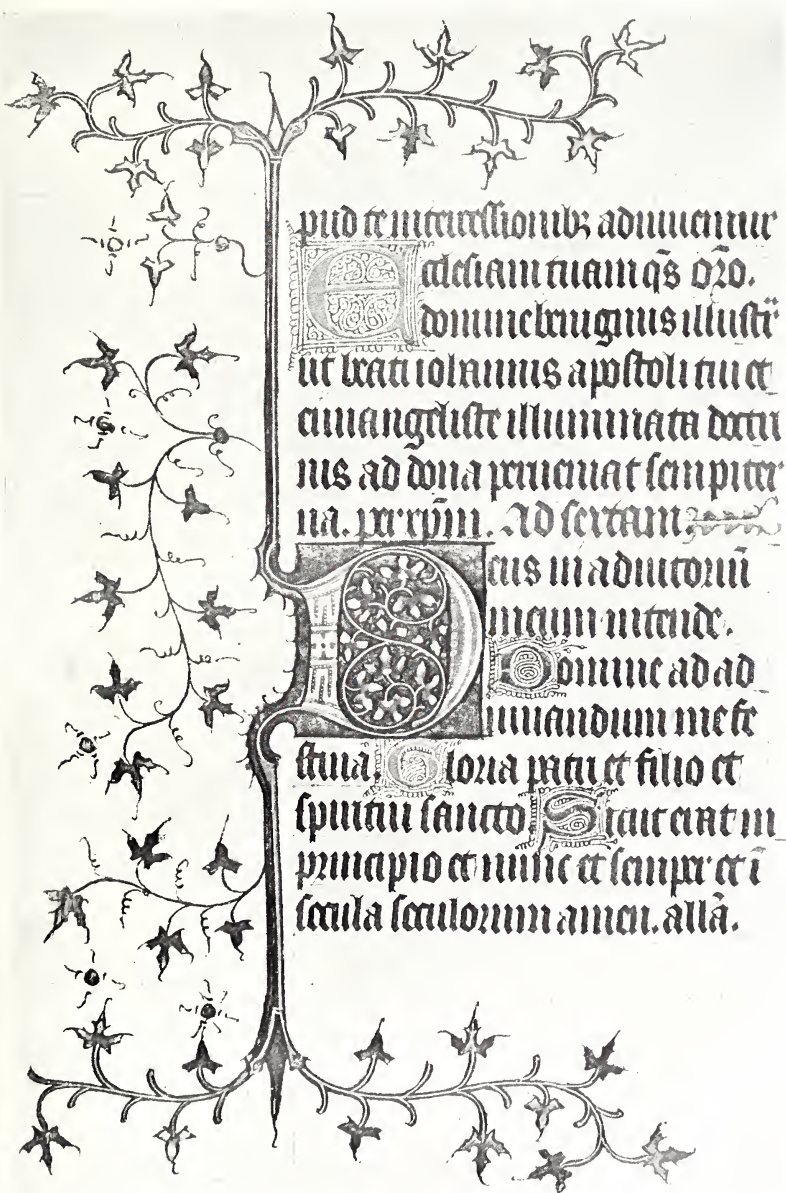 pud te intercessionibꝫ adiuuentur
Ecclesiam tuam qs̄ oro.
domine benignus illustr̄
ut beati iohannis apostoli tui et
euuangeliste illuminata doctri
nis ad dona perueniat sempiter
na. per xp̄m. Ad sextam
Deus in adiutoriū
meum intende.
Domine ad ad
iuuandum me fe
stina. Gloria patri et filio et
spiritui sancto Sicut erat in
principio et nunc et semper et ī
secula seculorum amen. allā.